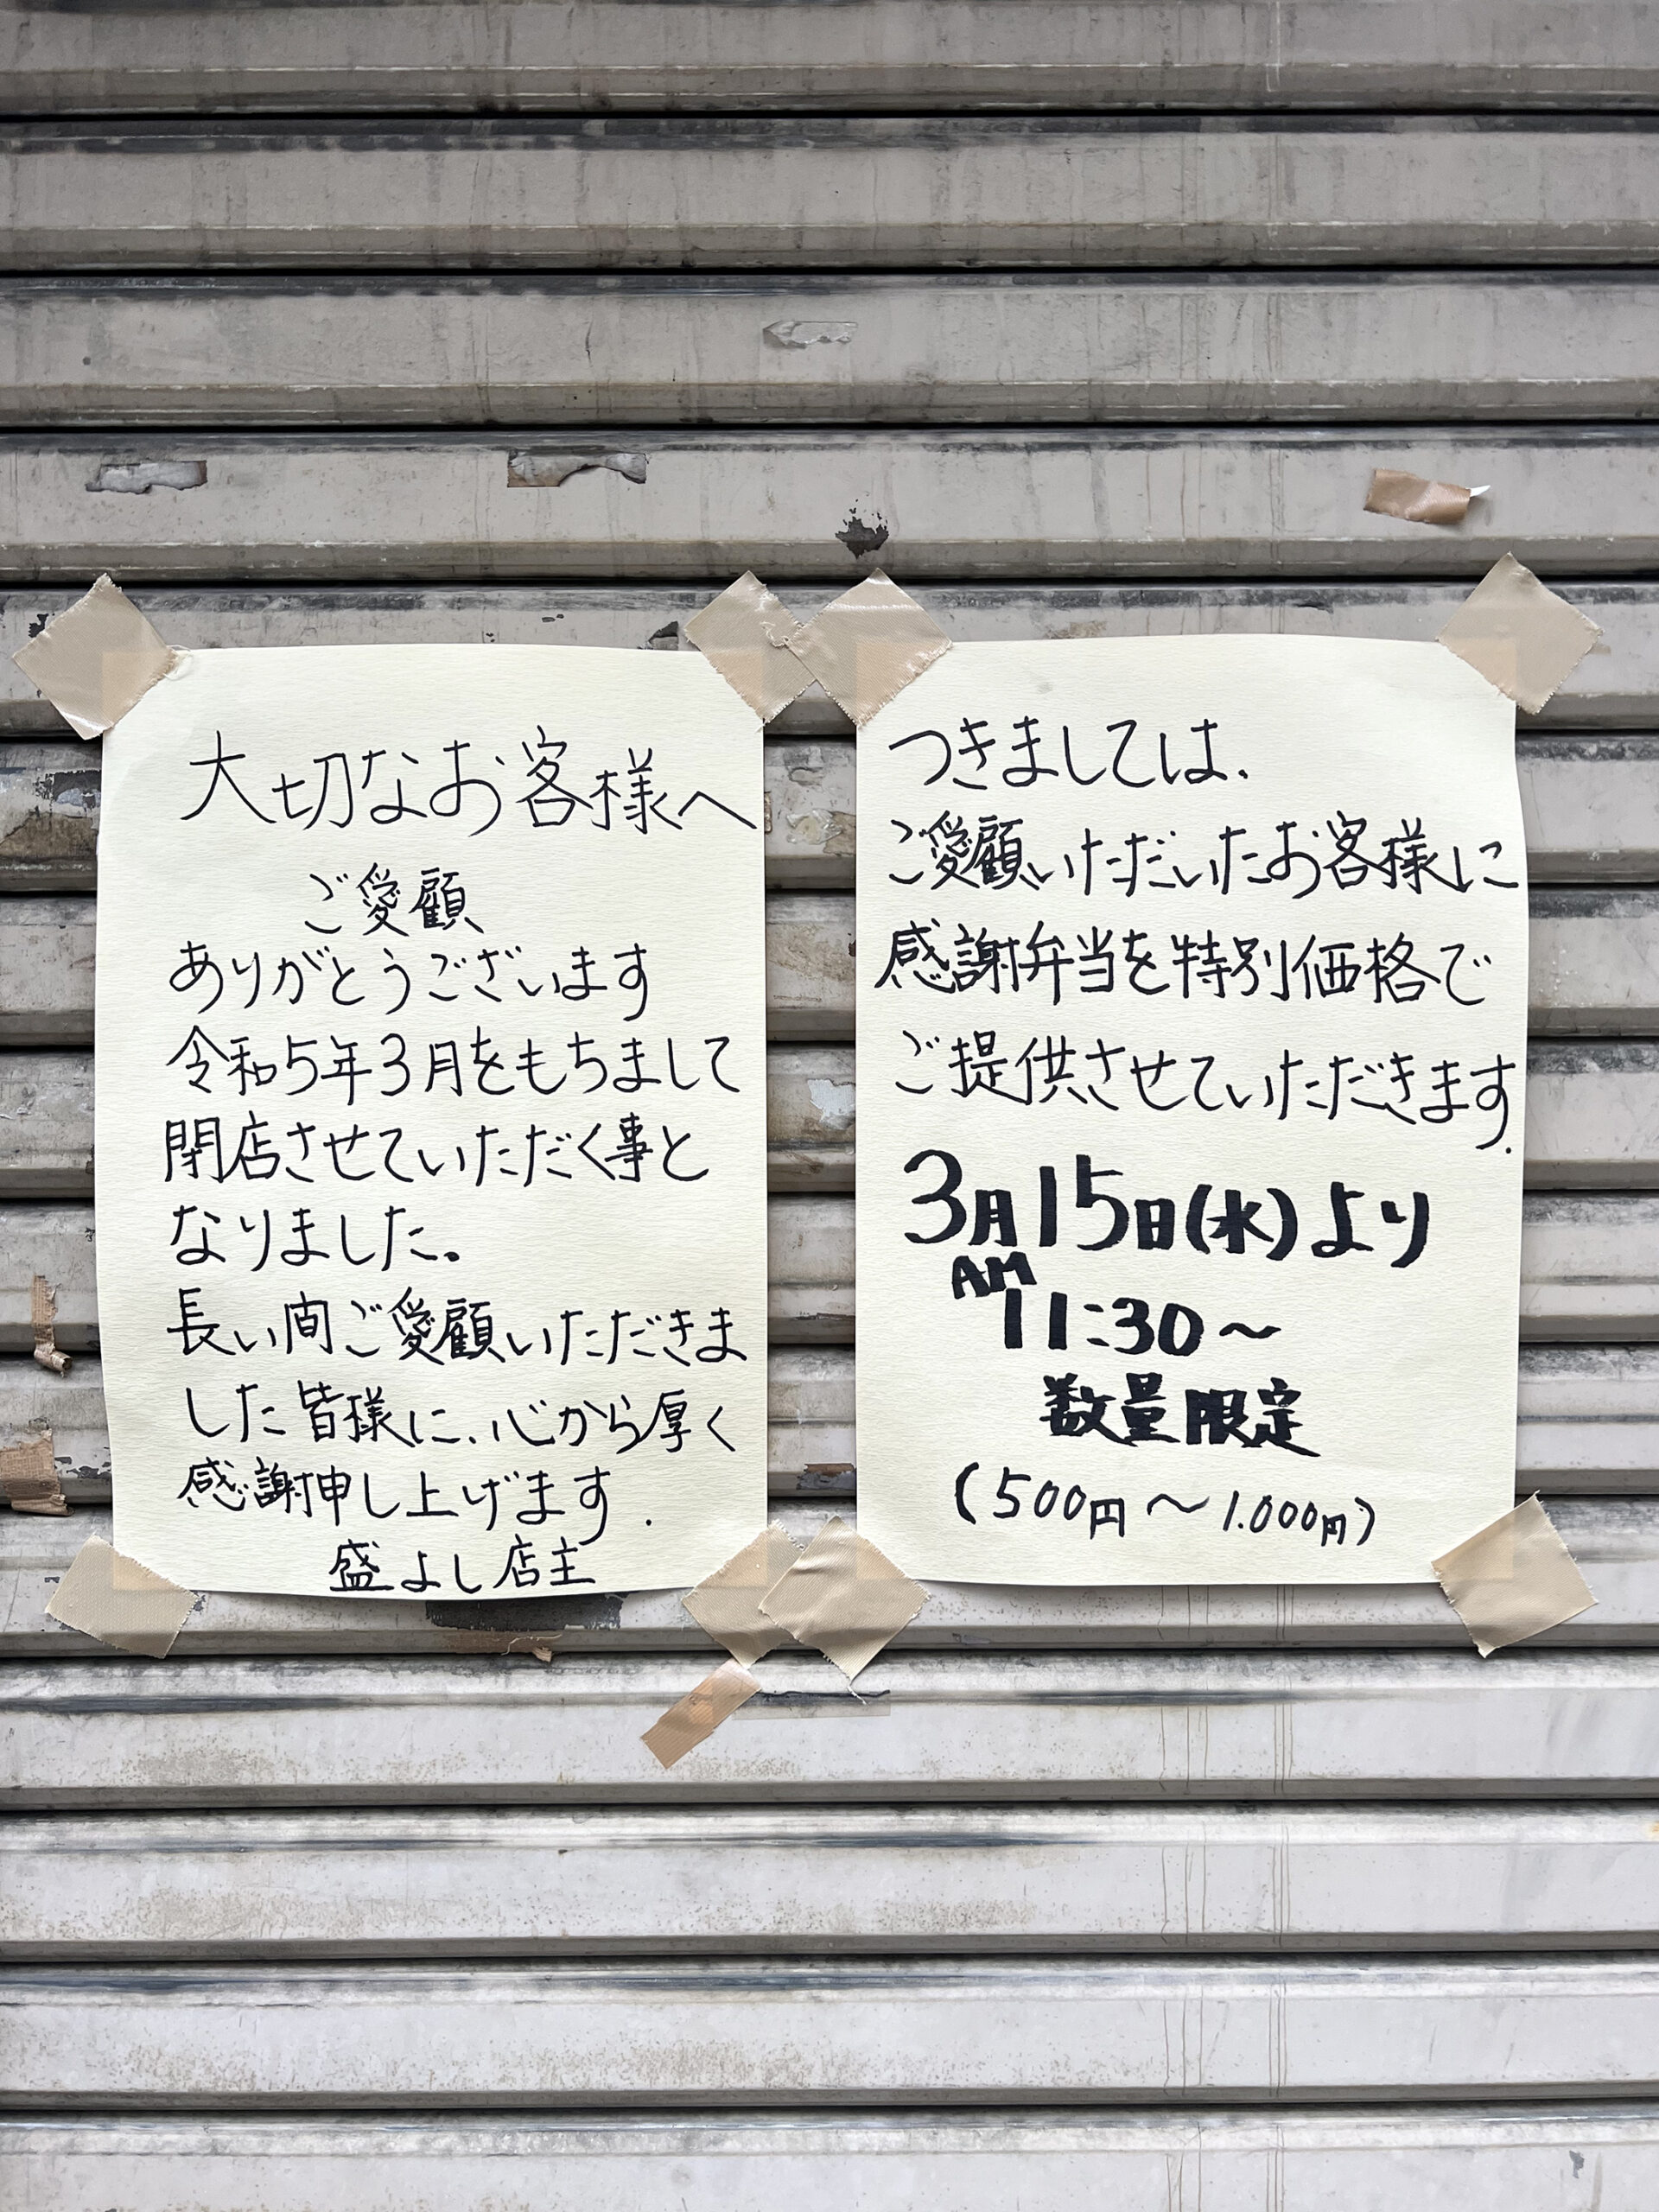 大切なお客様へ
ご愛顧
ありがとうございます
令和5年3月をもちまして
閉店させていただく事と
なりました。
長い間ご愛顧いただきま
した皆様に、心から厚く
感謝申し上げます.
盛よし店主
つきましては、
ご愛顧いただいたお客様に
感謝弁当を特別価格で
ご提供させていただきます.
3月15日(水)より
AM
11:30～
数量限定
(500円～1.000円)